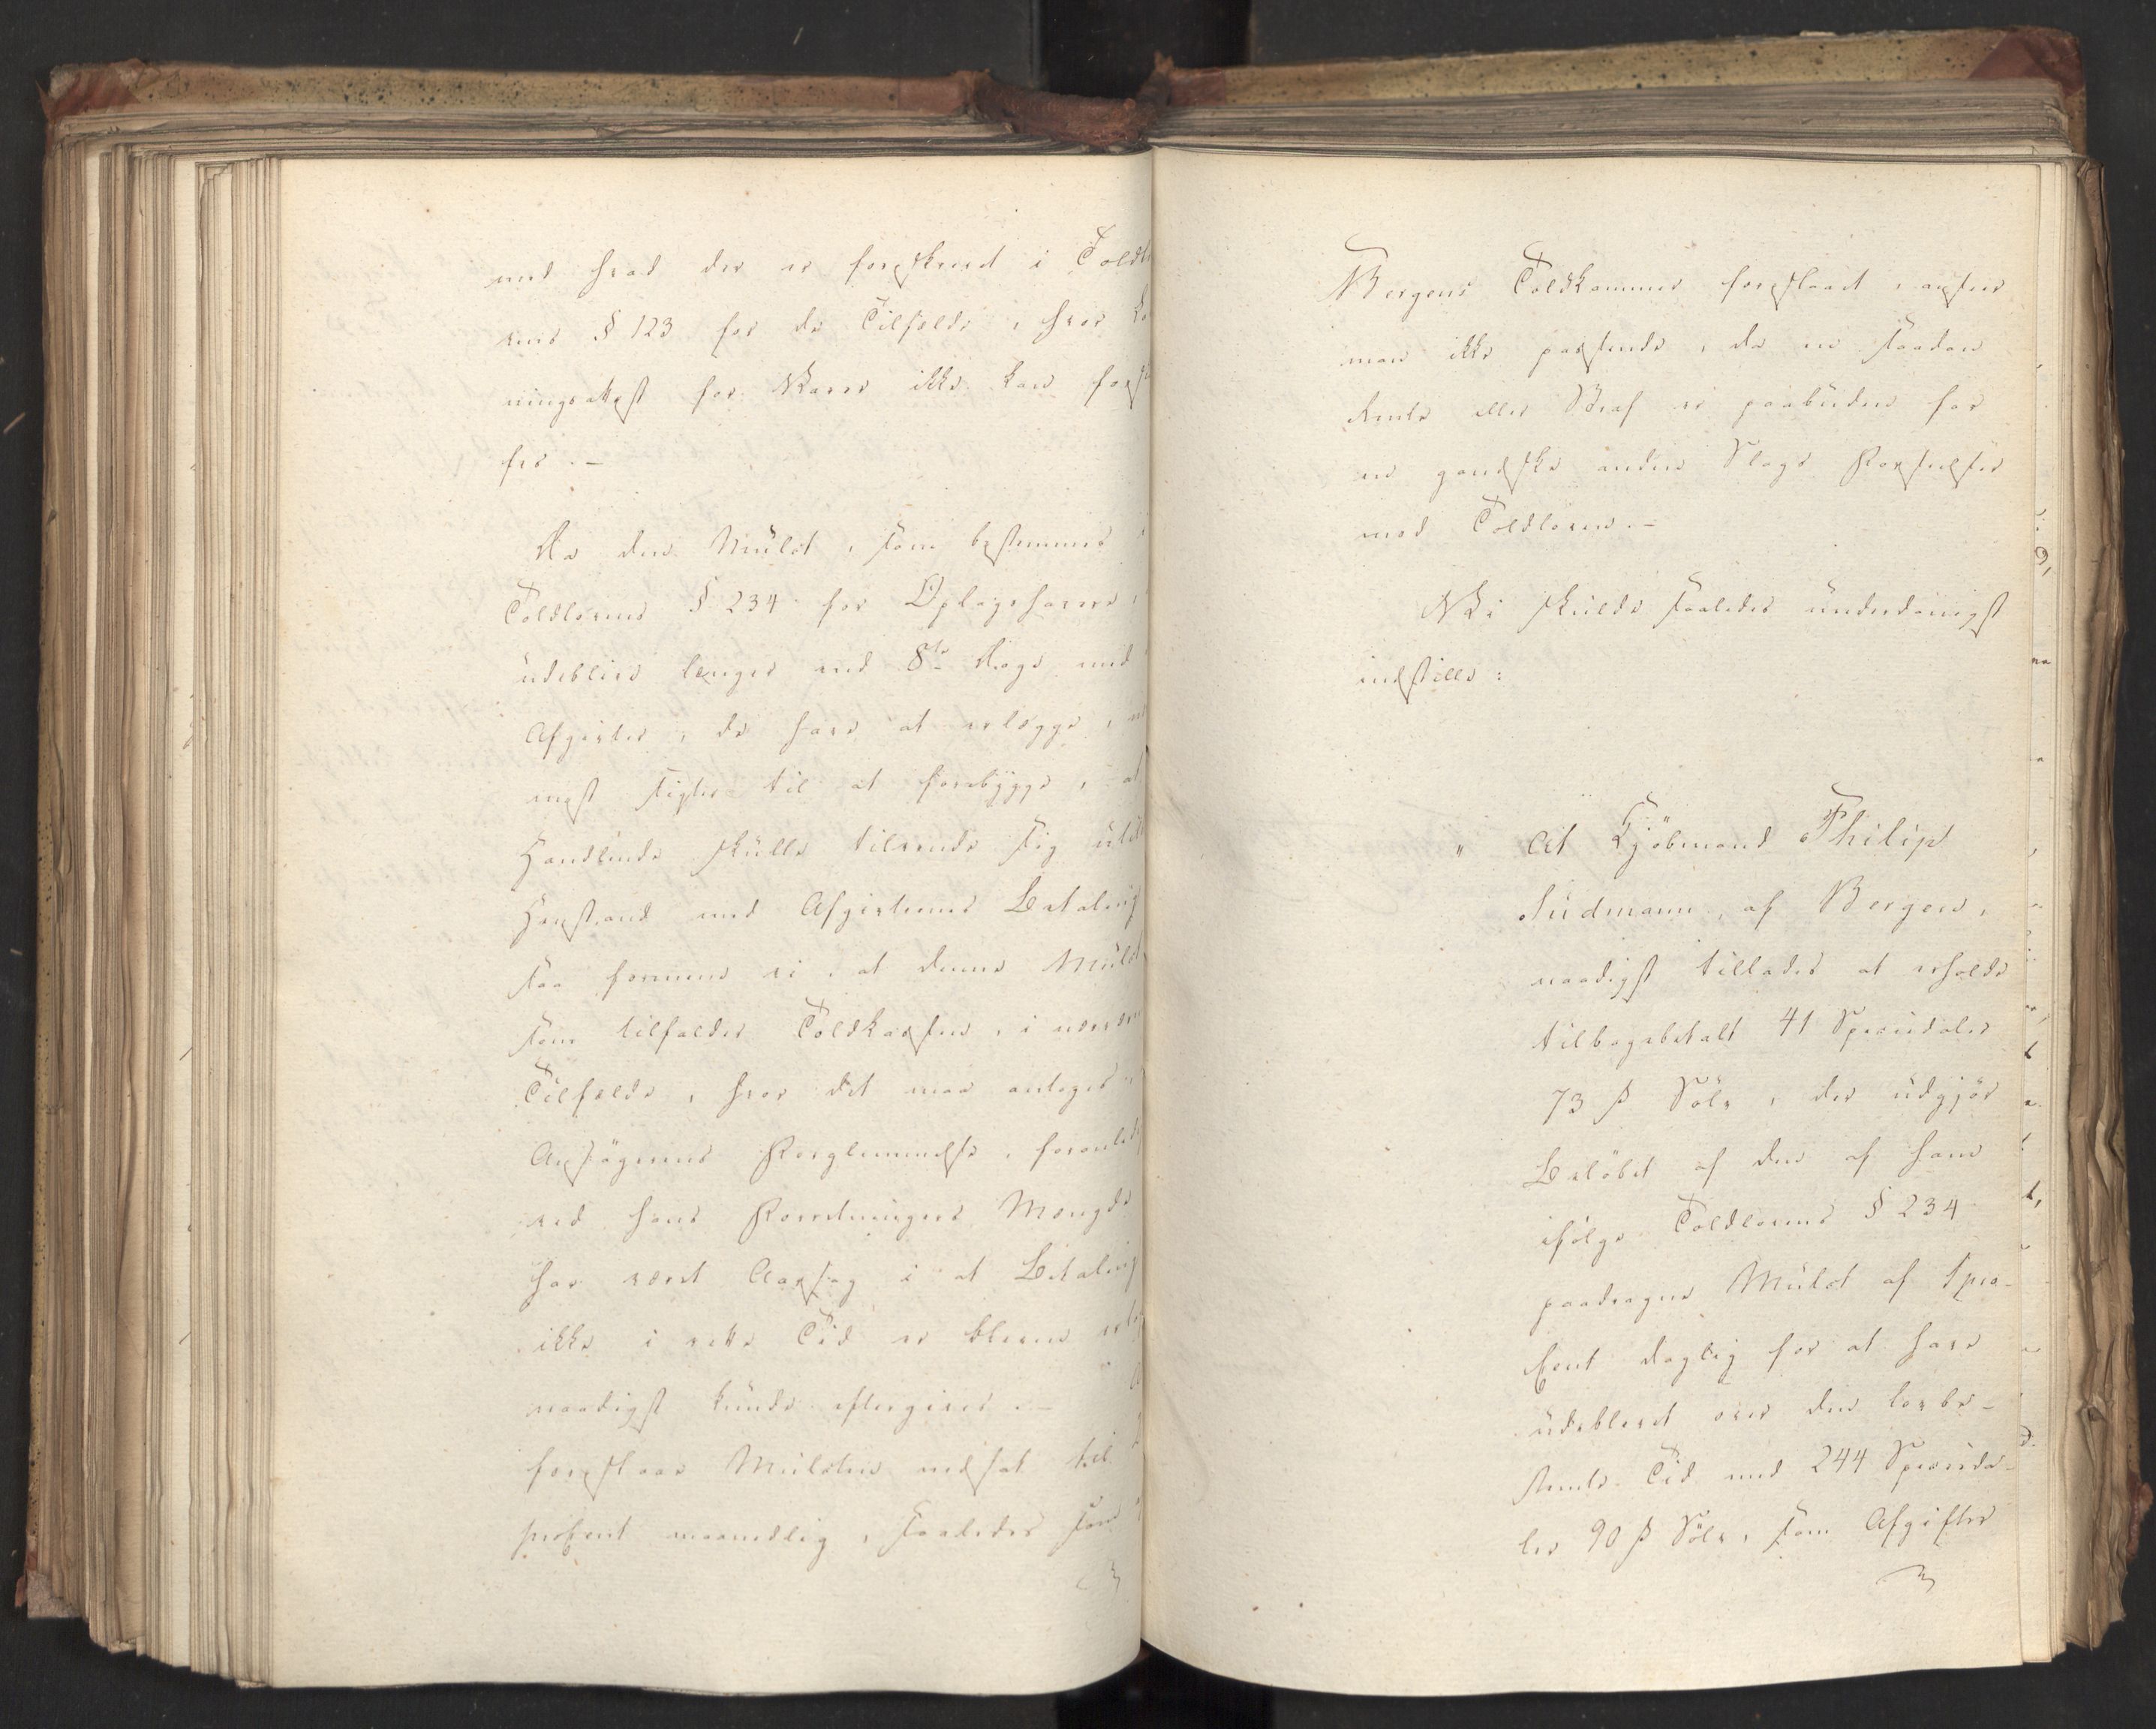 med hvad der er foreskrevet i Toldlo
vens § 123 for de Tilfælde, hvor
ningsattest for Varer ikke kan
fes.-
Da den Mulct, som bestemmes i
Toldlovens § 234 for Oplagshavere,
udeblive længer end 8te Dage med
Afgivter, de have at erlægge,
mest sigter til at forebygge, at
Handlende skulle tilvende sig
Henstand med Afgivternes Betaling
saa formene vi, at denne Mulct
som tilfalder Toldkassen, i nærvæ
Tilfælde, hvor det maa antages
Ansøgerens Forglemmelse, foranled
ved hans Forretningers Mængde
har været Aarsag i at Betaling
ikke i rette Tid er bleven erl
naadigst kunde eftergives.-
foreslaar Mulcten nedsat til
procent maanedlig, saaledes som
Bergens Toldkammer foreslaaet, ansees
man ikke passende, da en saadan
Rente eller Straf er paabuden for
en gandske anden Slags Forseelser
mod Toldloven.-
Vi skulde saaledes underdanigst
indstille:
" At Kjøbmand Philip
Südmann, af Bergen,
naadigst tillades at erholde
tilbagebetalt 41 Speciedaler
73 ß Sølv, der udgjør
Beløbet af den af ham
ifølge Toldlovens § 234
paadragne Mulct af 1 pro-
Cent daglig for at have
udeblevet over den lovbe-
stemte Tid med 244 Specieda-
ler 90 ß Sølv, som Afgifter